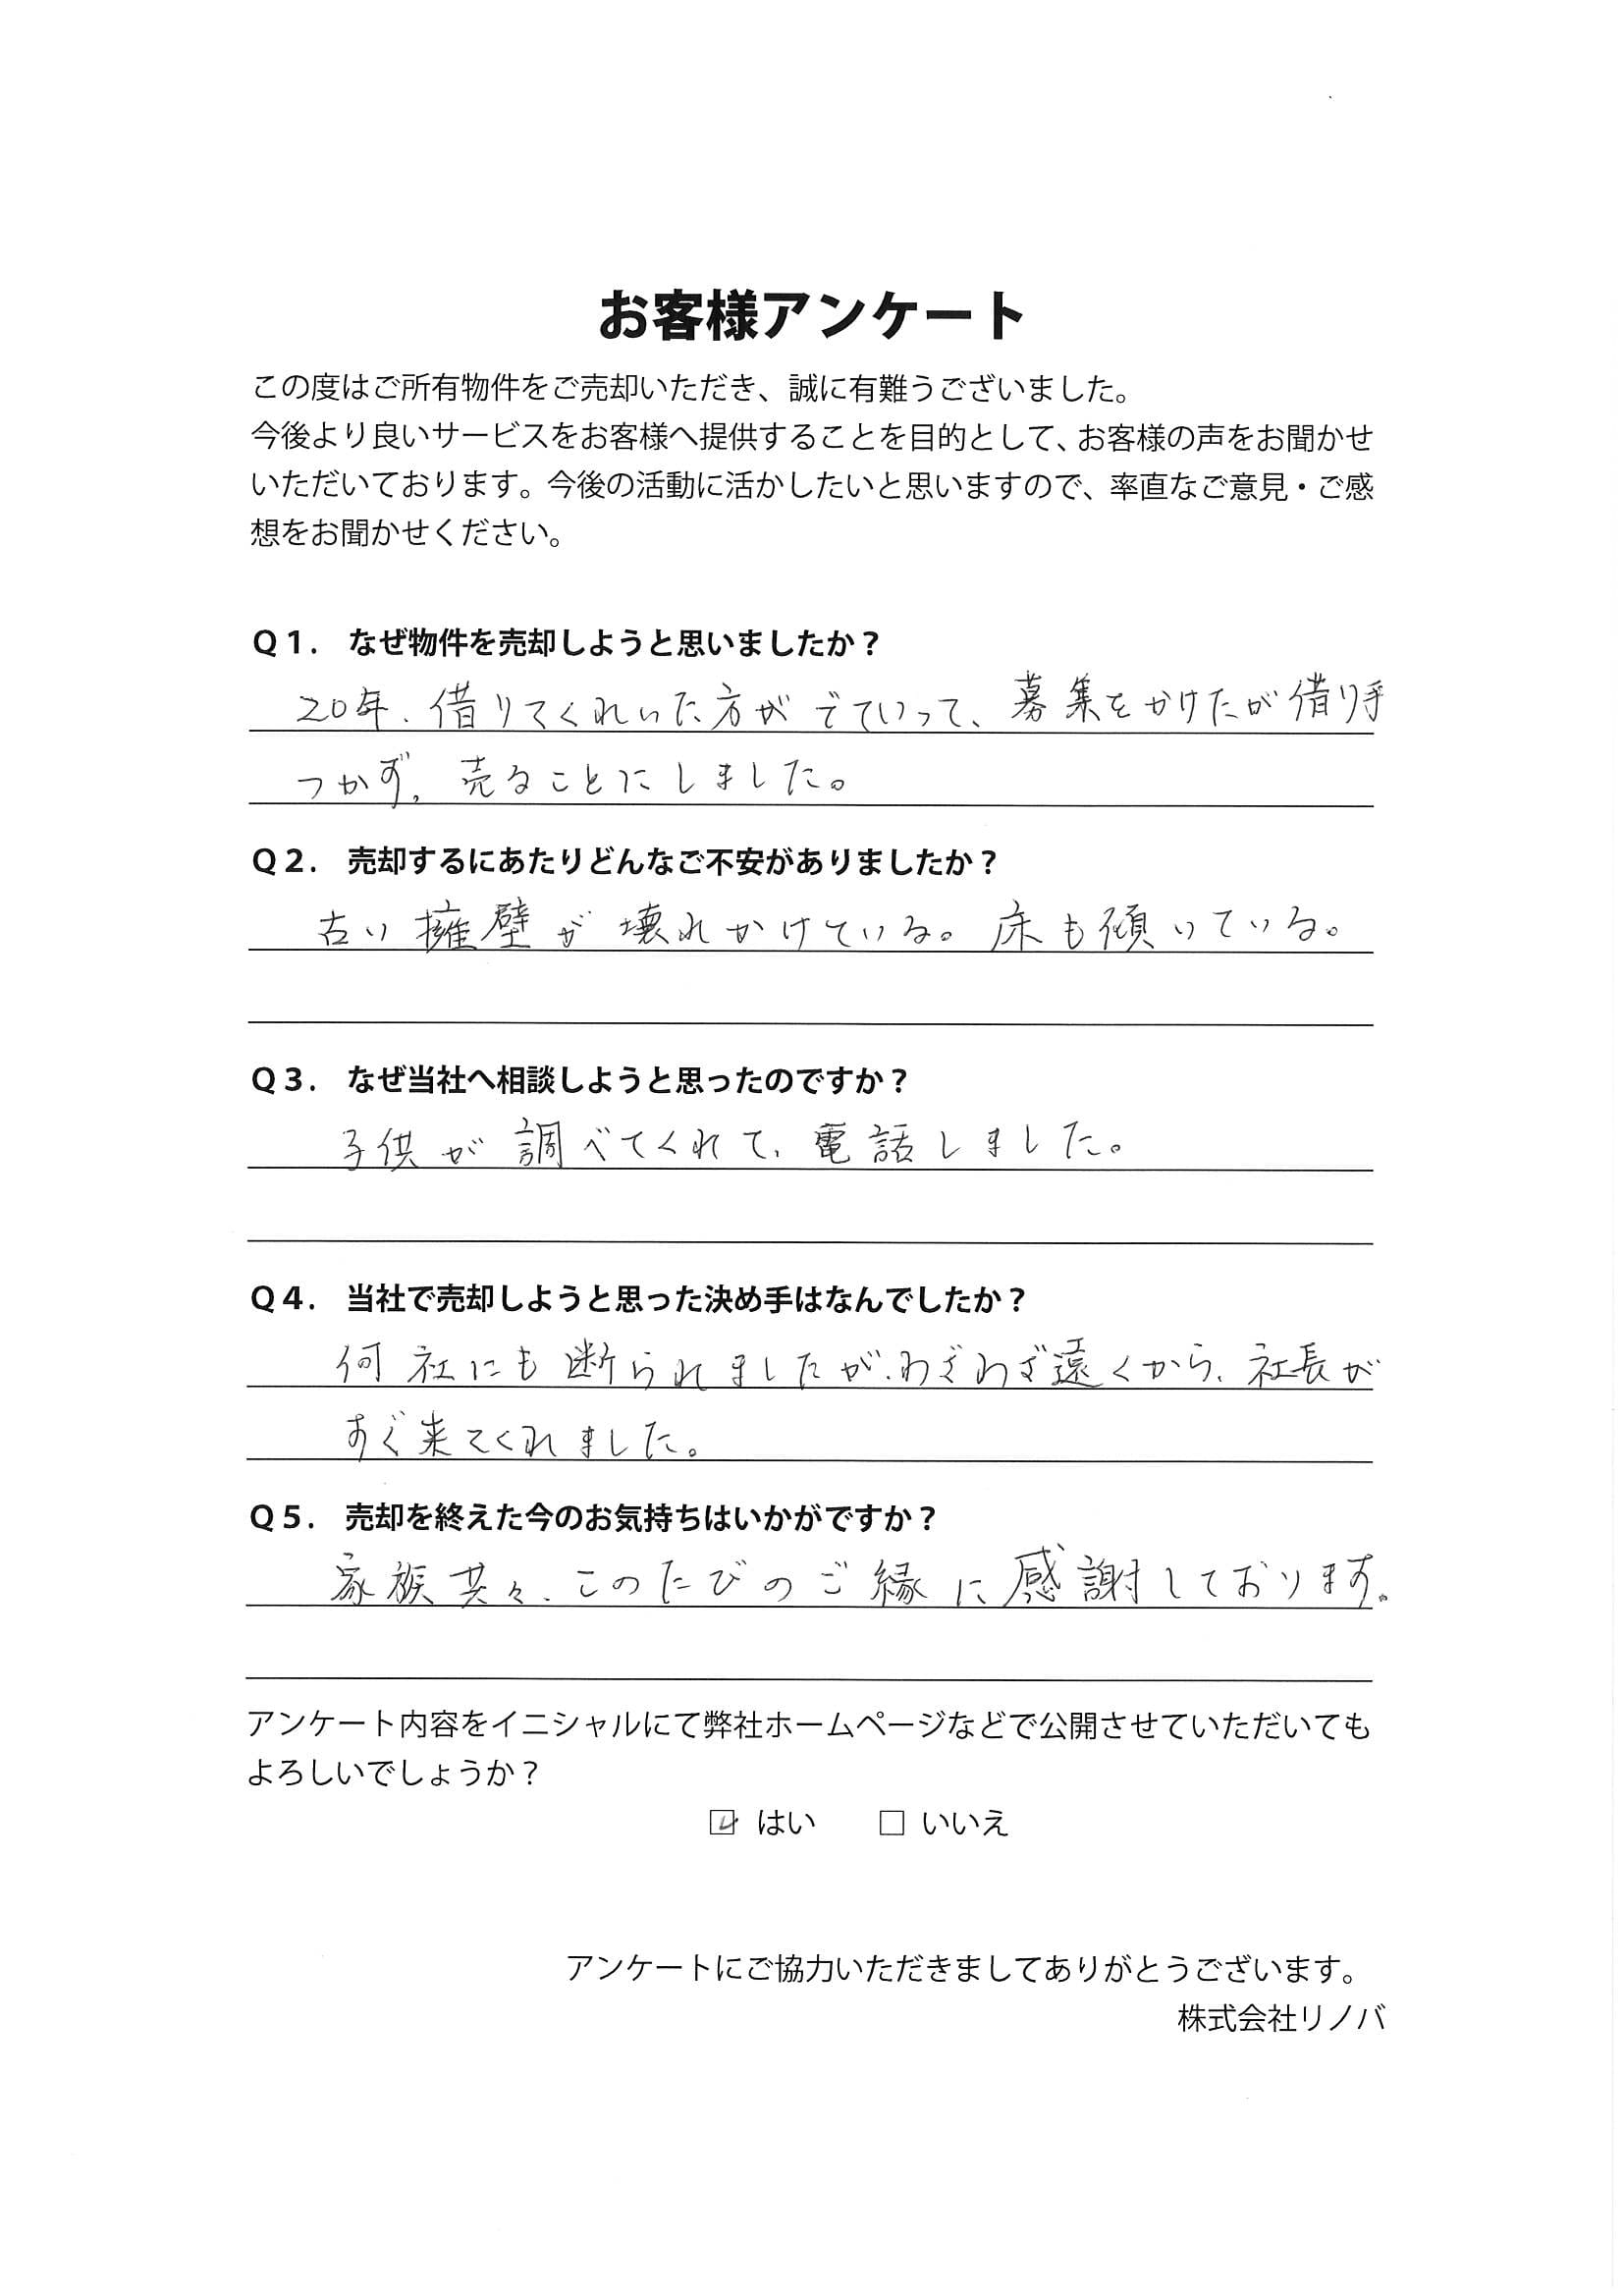 お客様アンケート
この度はご所有物件をご売却いただき、誠に有難うございました。
今後より良いサービスをお客様へ提供することを目的として、お客様の声をお聞かせ
いただいております。今後の活動に活かしたいと思いますので、率直なご意見・ご感
想をお聞かせください。
Q1. なぜ物件を売却しようと思いましたか？
20年、借りてくれいた方がでていって、募集をかけたが借り手
つかず、売ることにしました。
Q2. 売却するにあたりどんなご不安がありましたか？
古い擁壁が壊れかけている。床も傾いている。
Q3. なぜ当社へ相談しようと思ったのですか？
子供が調べてくれて、電話しました。
Q4. 当社で売却しようと思った決め手はなんでしたか？
何社にも断られましたが、わざわざ遠くから、社長が
すぐ来てくれました。
Q5. 売却を終えた今のお気持ちはいかがですか？
家族共々、このたびのご縁に感謝しております。
アンケート内容をイニシャルにて弊社ホームページなどで公開させていただいても
よろしいでしょうか？
☑ はい □ いいえ
アンケートにご協力いただきましてありがとうございます。
株式会社リノバ